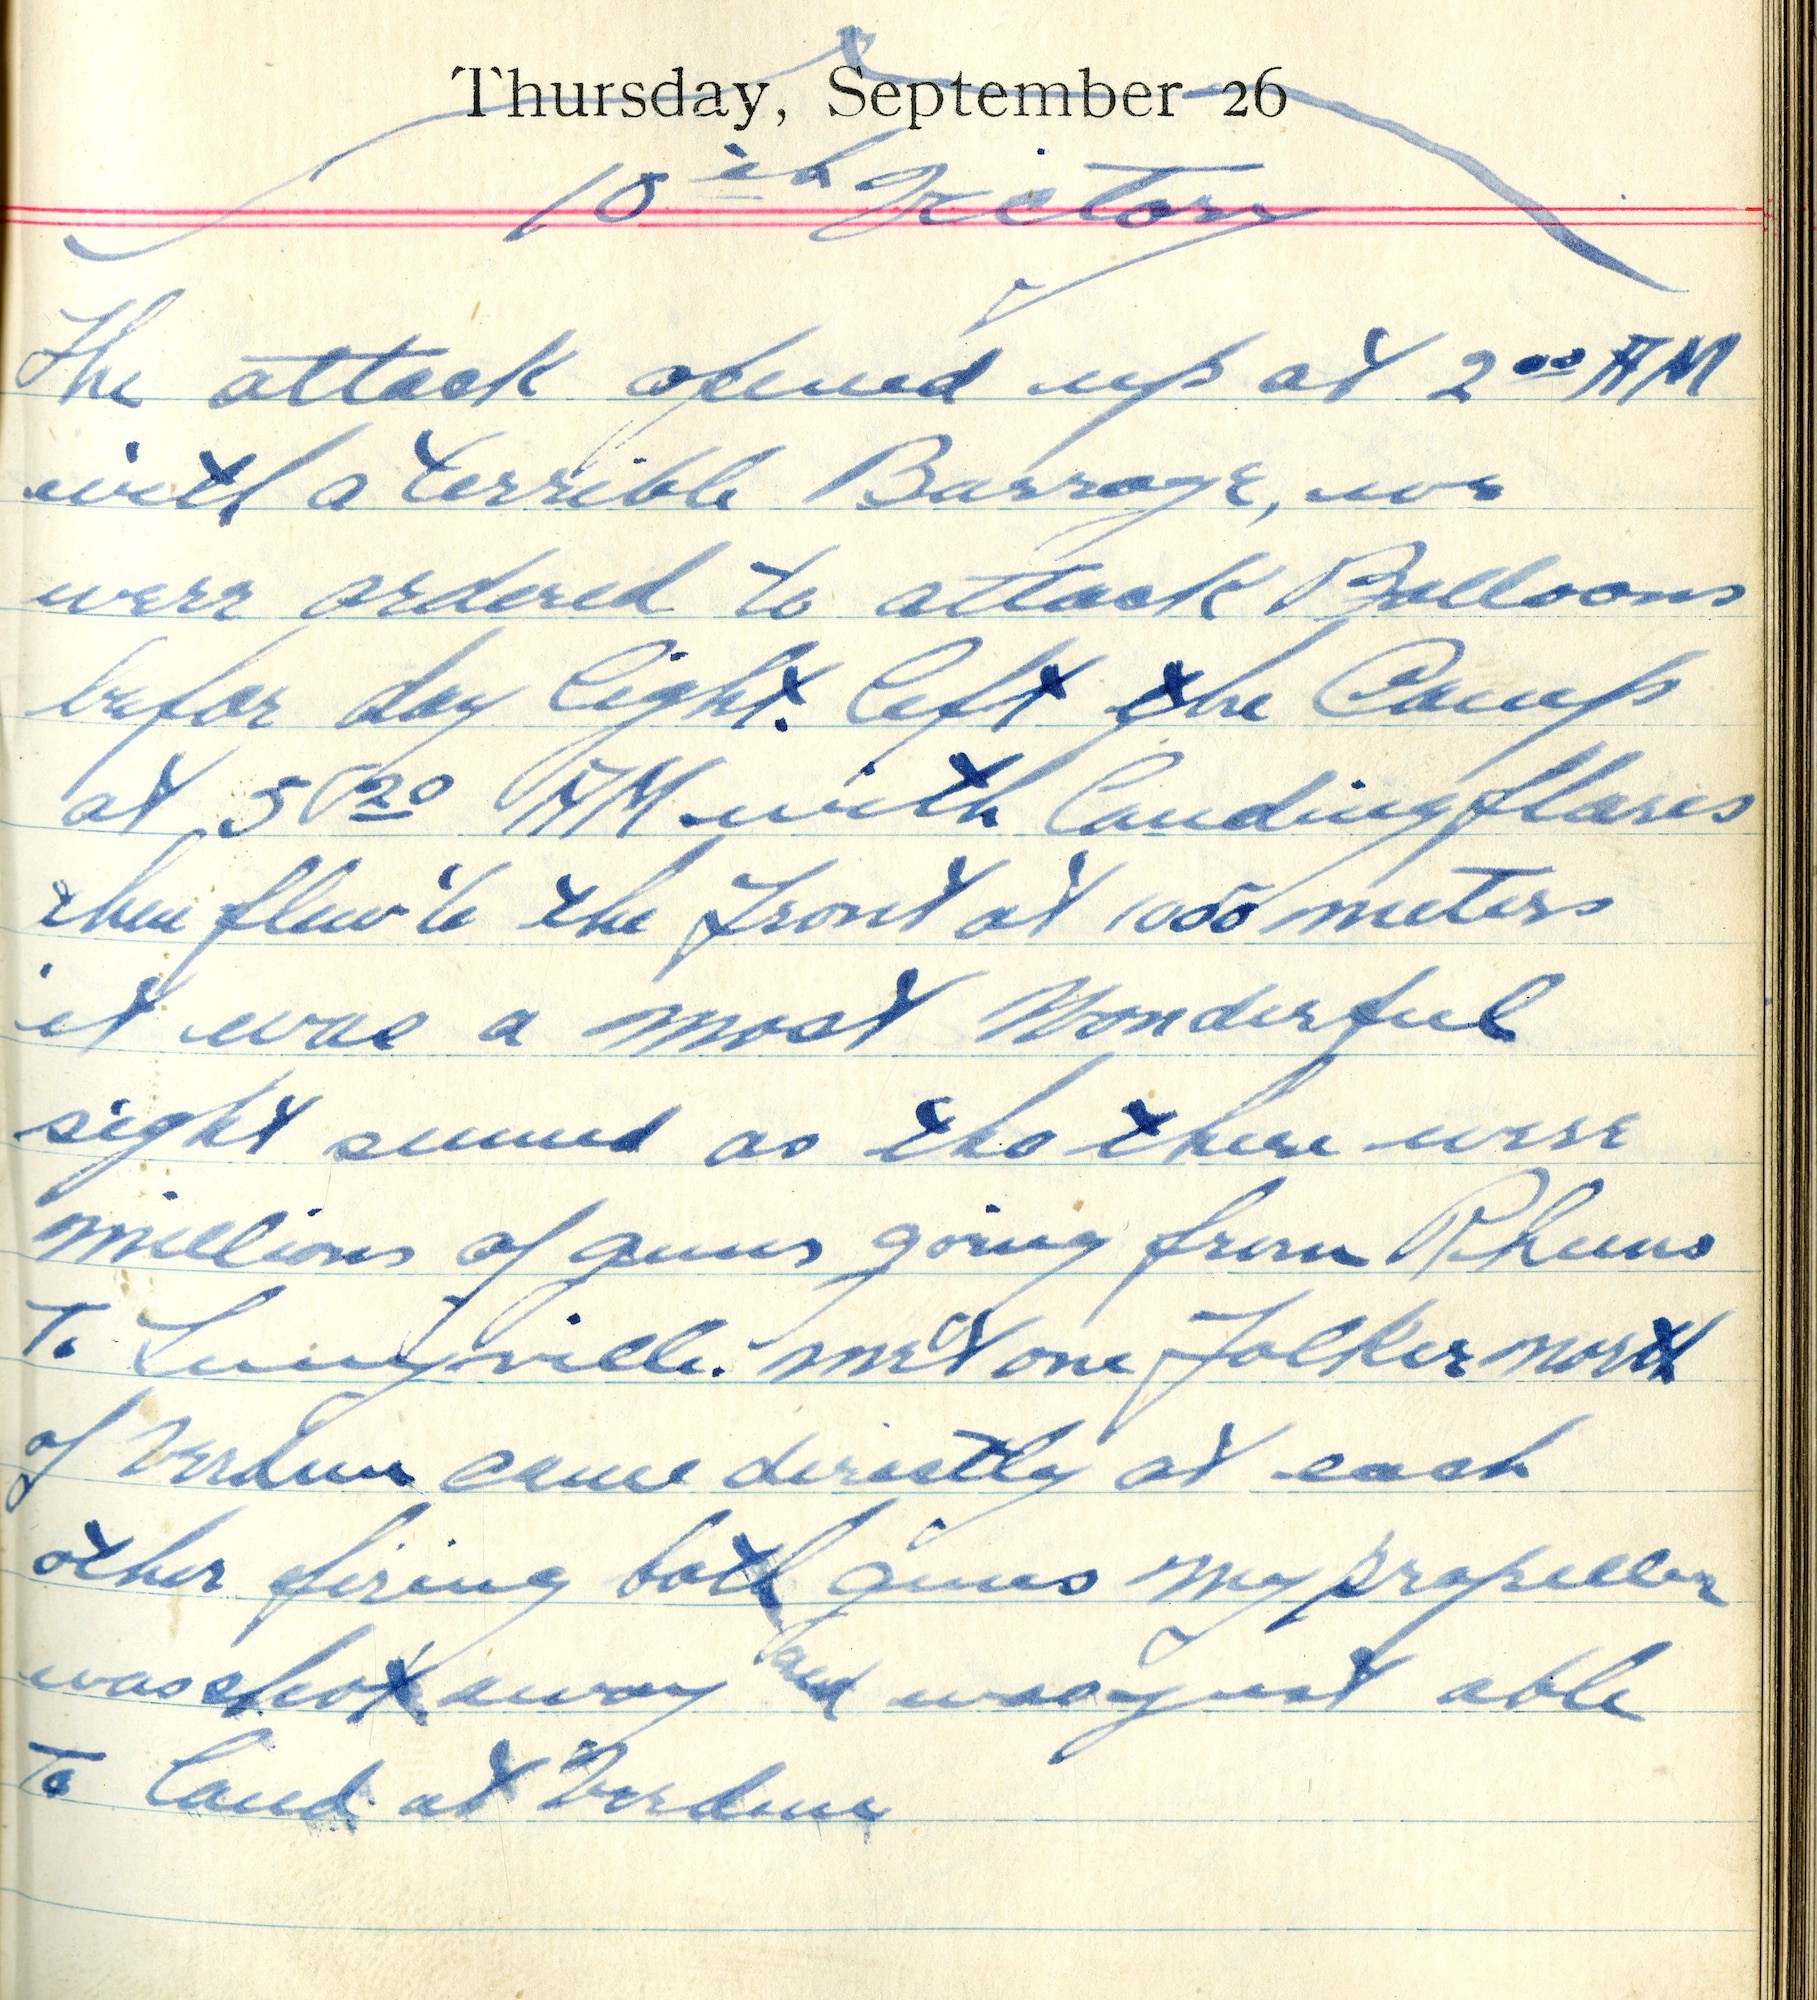 Thursday, September 26
10th Victory
The attack opened up at 2 00 AM
with a terrible Barrage, we
were ordered to attack Balloons
befor day light. left the Camp
at 5 20 AM with landing flares
then flew to the front at 1000 meters
it was a most Wonderful
sight seemed as tho there were
millions of guns going from Rheims
To Luneyville. met one Folker north
of Verdun came directly at each
other firing both guns my propeller
was shot away and was just able
To land at Verdun